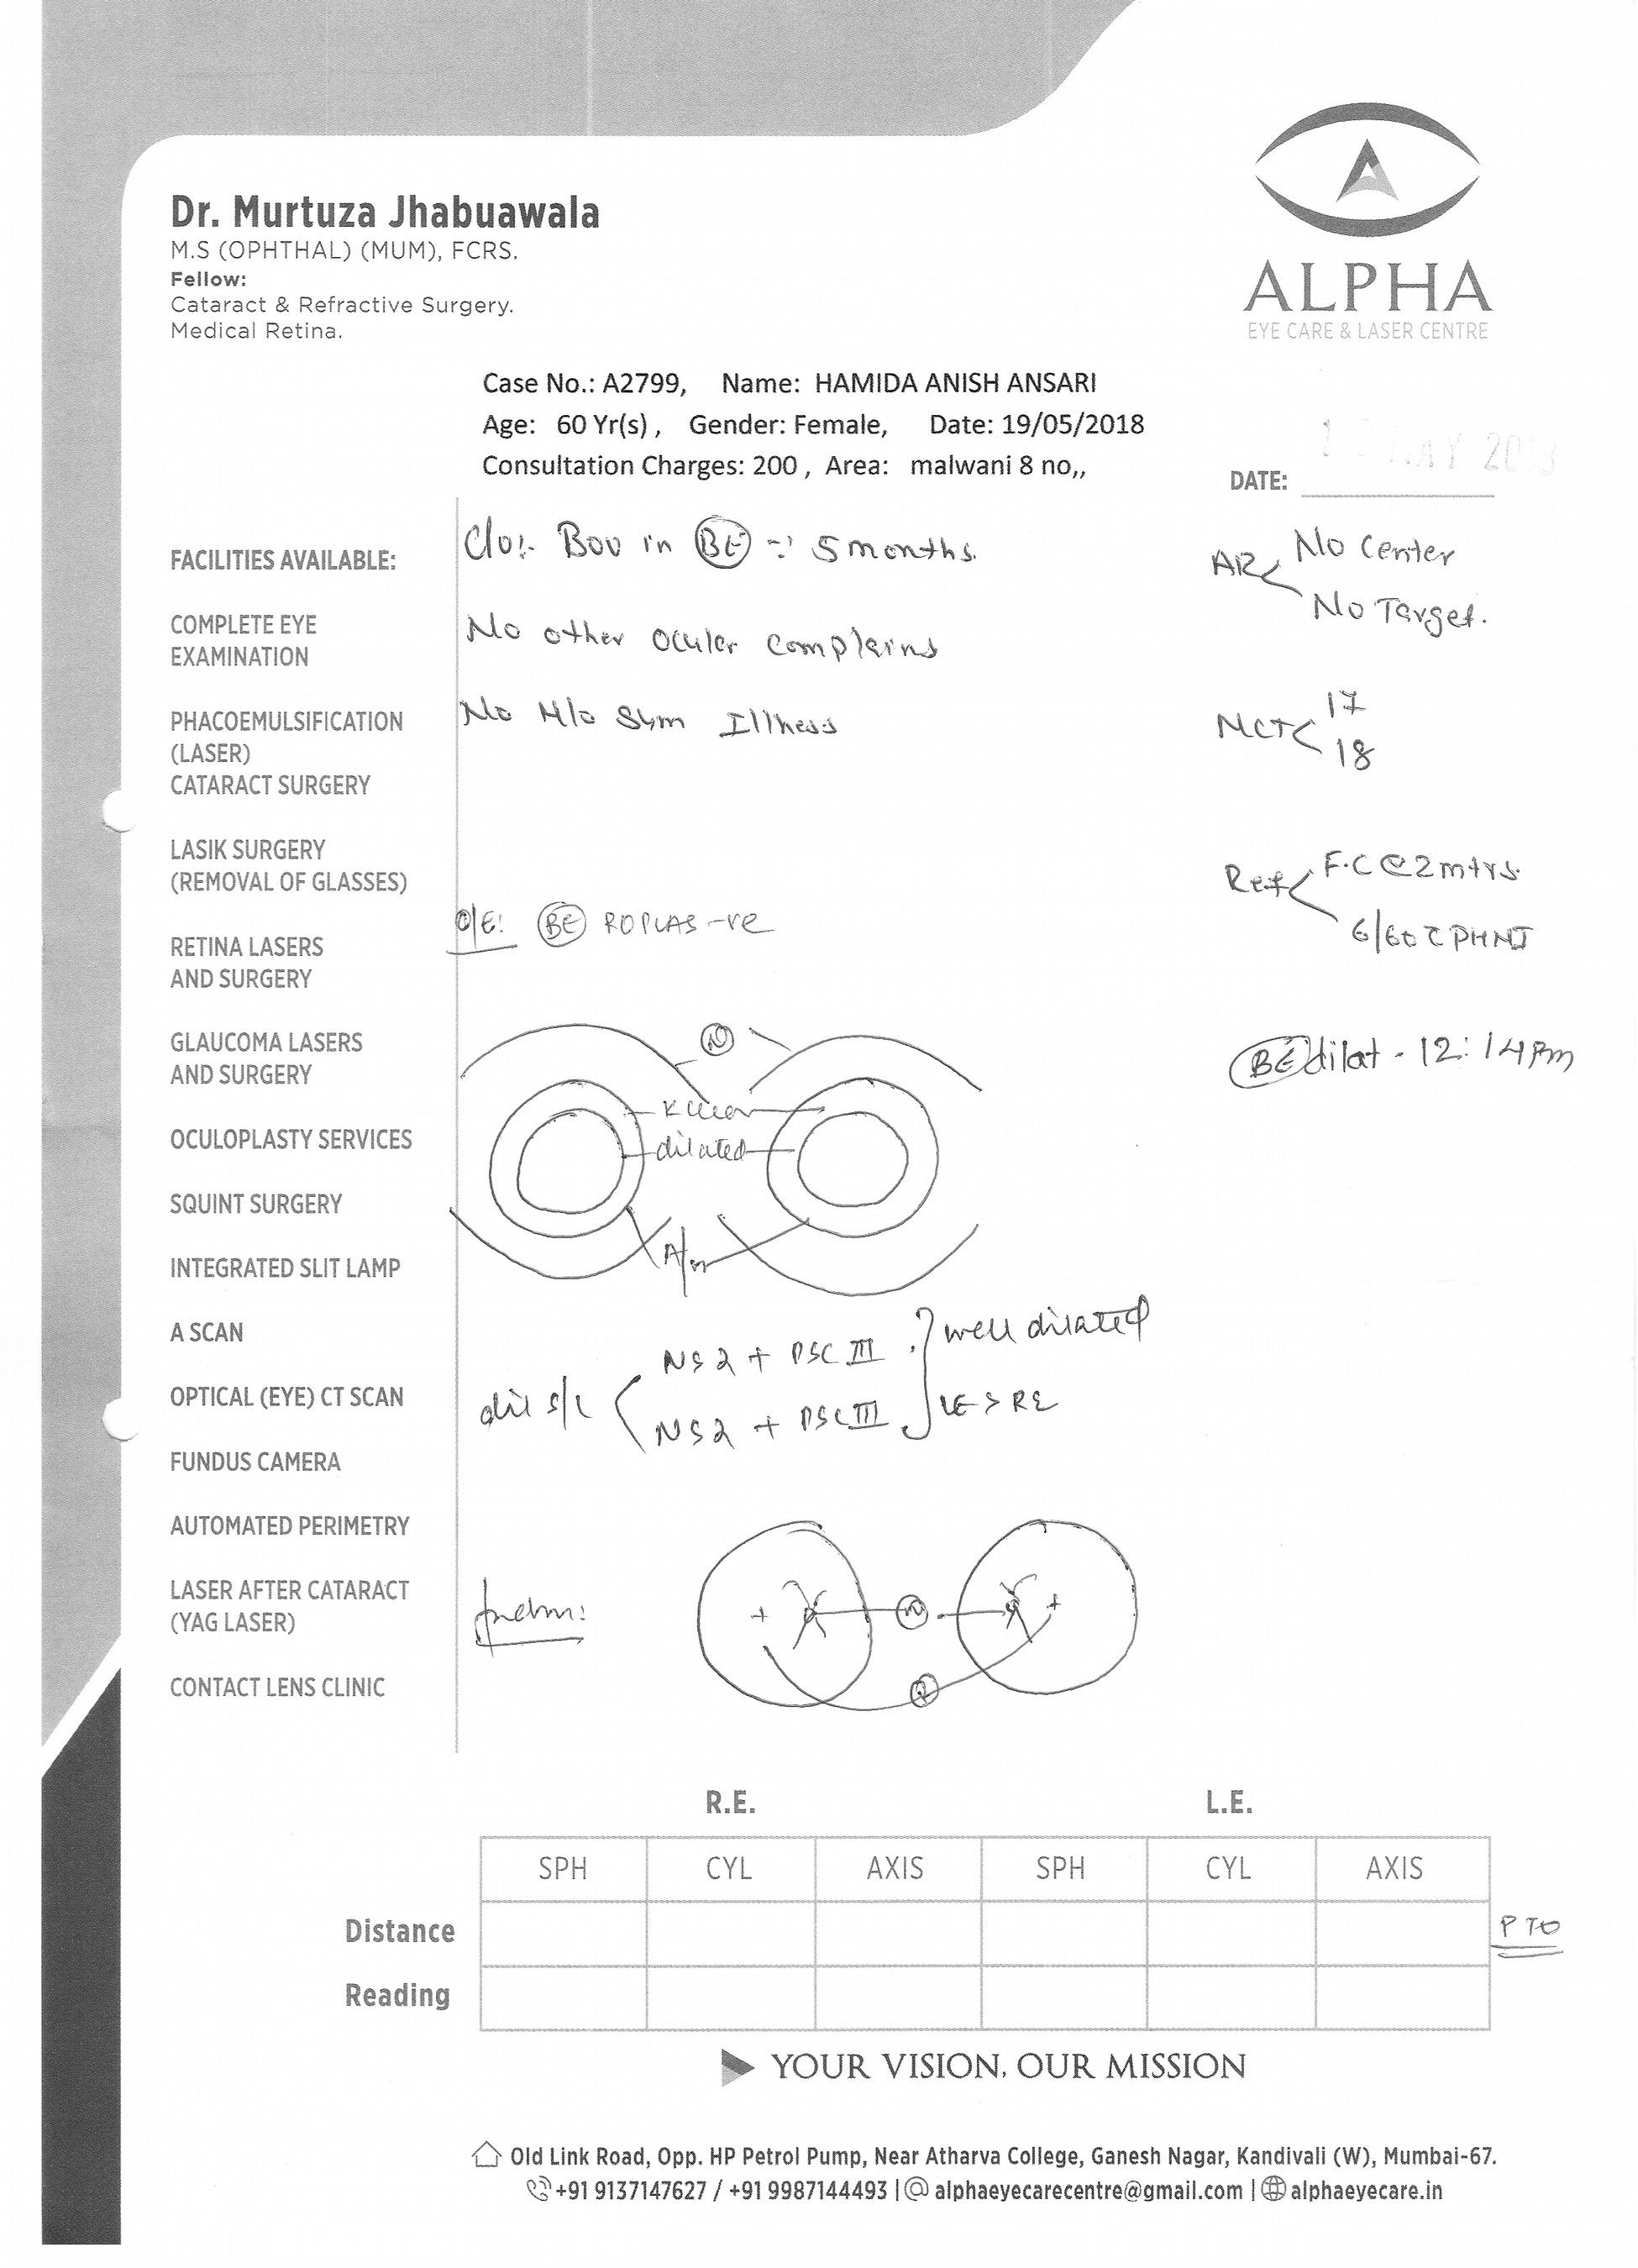 Dr. Murtuza Jhabuawala
M.S (OPHTHAL) (MUM), FCRS.
Fellow:
Cataract & Refractive Surgery.
Medical Retina.
ALPHA
EYE CARE & LASER CENTRE
Case No.: A2799, Name: HAMIDA ANISH ANSARI
Age: 60 Yr(s) , Gender: Female, Date: 19/05/2018
Consultation Charges: 200 , Area: malwani 8 no,,
MAY 2018
DATE:
C/o:- BOV in BE 5 months.
No other ocular complains
No H/o Sym Illness
AR
No Center
No Target.
NCT
17
18
Ref
F.C @ 2 mtrs.
6/60 c PHNI
BE dilat - 12:14 pm
O/E: BE ROPLAS -ve
N
K clear
dilated
dil s/L
NS2 + PSC III
NS2 + PSC III
well dilated
LE > RE
fndm:
N
PTO
FACILITIES AVAILABLE:
COMPLETE EYE
EXAMINATION
PHACOEMULSIFICATION
(LASER)
CATARACT SURGERY
LASIK SURGERY
(REMOVAL OF GLASSES)
RETINA LASERS
AND SURGERY
GLAUCOMA LASERS
AND SURGERY
OCULOPLASTY SERVICES
SQUINT SURGERY
INTEGRATED SLIT LAMP
A SCAN
OPTICAL (EYE) CT SCAN
FUNDUS CAMERA
AUTOMATED PERIMETRY
LASER AFTER CATARACT
(YAG LASER)
CONTACT LENS CLINIC
R.E. L.E.
SPH CYL AXIS SPH CYL AXIS
Distance
Reading
YOUR VISION, OUR MISSION
Old Link Road, Opp. HP Petrol Pump, Near Atharva College, Ganesh Nagar, Kandivali (W), Mumbai-67.
+91 9137147627 / +91 9987144493 | @ alphaeyecarecentre@gmail.com | alphaeyecare.in